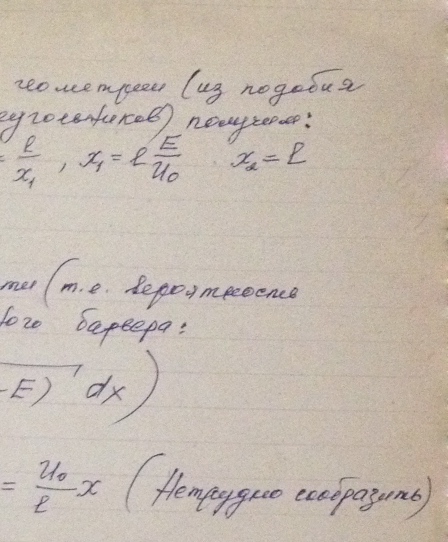 геометрии (из подобия
еугольников) получим:
= l/x₁ , x₁ = l E/U₀ x₂ = l
ти (т.е. вероятность
ого барьера:
-E) dx)
= U₀/l x (Нетрудно сообразить)